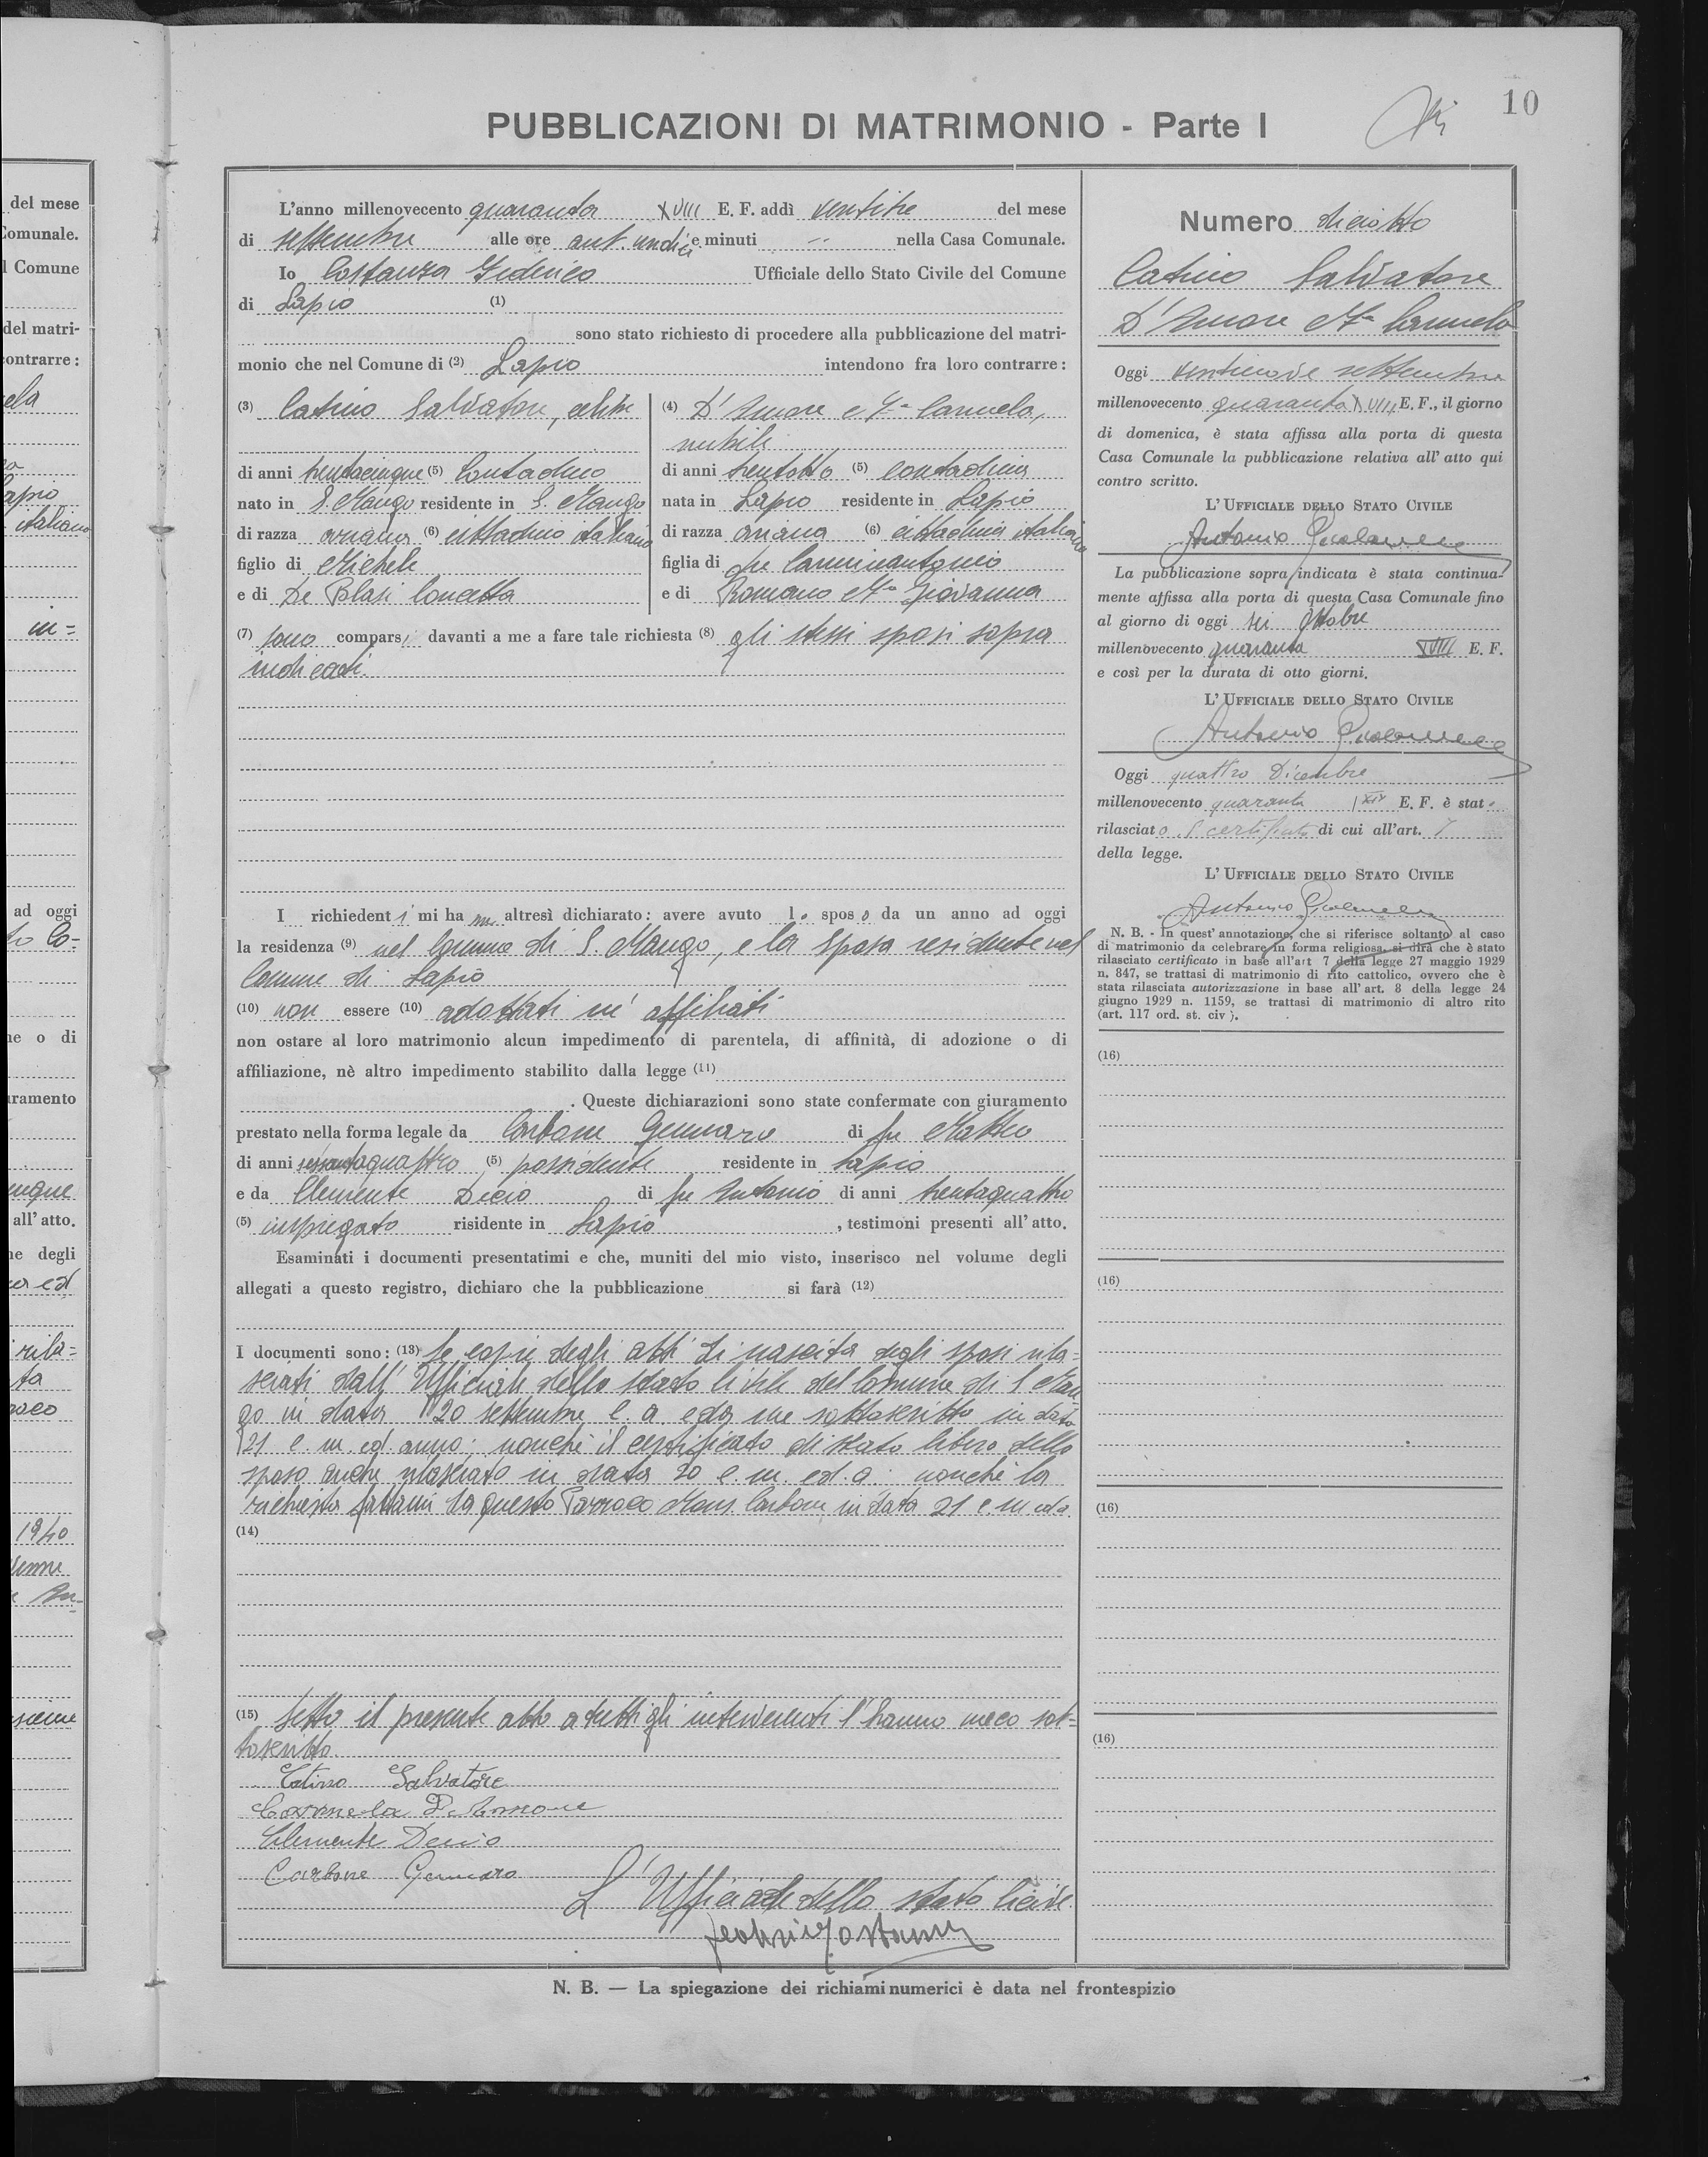 10
PUBBLICAZIONI DI MATRIMONIO - Parte I
L'anno millenovecento quaranta XVIII E. F. addì ventitre del mese
di settembre alle ore ant. undici e minuti -- nella Casa Comunale.
Io Costanza Federico Ufficiale dello Stato Civile del Comune
di Lapio (1)
sono stato richiesto di procedere alla pubblicazione del matri-
monio che nel Comune di (2) Lapio intendono fra loro contrarre:
(3) Catino Salvatore, celibe
di anni trentacinque (5) Contadino
nato in S. Mango residente in S. Mango
di razza ariana (6) cittadino italiano
figlio di Michele
e di De Blasi Concetta
(4) D'Amore Ma Carmela,
nubile
di anni trentotto (5) contadina
nata in Lapio residente in Lapio
di razza ariana (6) cittadina italiana
figlia di fu Carmineantonio
e di Romano Ma Giovanna
(7) sono comparsi davanti a me a fare tale richiesta (8) gli stessi sposi sopra
indicati.
I richiedenti mi hanno altresì dichiarato: avere avuto lo sposo da un anno ad oggi
la residenza (9) nel Comune di S. Mango, e la sposa residente nel
Comune di Lapio
(10) non essere (10) adottati nè affiliati
non ostare al loro matrimonio alcun impedimento di parentela, di affinità, di adozione o di
affiliazione, nè altro impedimento stabilito dalla legge (11)
. Queste dichiarazioni sono state confermate con giuramento
prestato nella forma legale da Carbone Gennaro di fu Matteo
di anni sessantaquattro (5) possidente residente in Lapio
e da Clemente Decio di fu Antonio di anni trentaquattro
(5) impiegato risidente in Lapio , testimoni presenti all'atto.
Esaminati i documenti presentatimi e che, muniti del mio visto, inserisco nel volume degli
allegati a questo registro, dichiaro che la pubblicazione si farà (12)
I documenti sono: (13) Le copie degli atti di nascita degli sposi rila=
sciati dall'Ufficiale dello stato Civile del Comune di S. Man
go in data 20 settembre c. a. e da me sottoscritto in data
21 c. m. ed anno; nonchè il certificato di stato libero dello
sposo anche rilasciato in data 20 c. m. ed. a. nonchè la
richiesta fattami da questo Parroco Mons. Carbone in data 21 c. m ed a.
(14)
(15) Letto il presente atto a tutti gli intervenuti l'hanno meco sot=
toscritto.
Catino Salvatore
Carmela D'Amore
Clemente Decio
Carbone Gennaro
L'Ufficiale dello stato Civile
Federico Costanza
N. B. — La spiegazione dei richiami numerici è data nel frontespizio
Numero diciotto
Catino Salvatore
D'Amore Ma Carmela
Oggi ventinove settembre
millenovecento quaranta XVIII E. F., il giorno
di domenica, è stata affissa alla porta di questa
Casa Comunale la pubblicazione relativa all'atto qui
contro scritto.
L'UFFICIALE DELLO STATO CIVILE
Antonio
La pubblicazione sopra indicata è stata continua-
mente affissa alla porta di questa Casa Comunale fino
al giorno di oggi sei ottobre
millenovecento quaranta XVIII E. F.
e così per la durata di otto giorni.
L'UFFICIALE DELLO STATO CIVILE
Antonio
Oggi quattro Dicembre
millenovecento quaranta XIX E. F. è stato
rilasciato il certificato di cui all'art. 7
della legge.
L'UFFICIALE DELLO STATO CIVILE
Antonio
N. B. - In quest'annotazione, che si riferisce soltanto al caso
di matrimonio da celebrare in forma religiosa, si dirà che è stato
rilasciato certificato in base all'art 7 della legge 27 maggio 1929
n. 847, se trattasi di matrimonio di rito cattolico, ovvero che è
stata rilasciata autorizzazione in base all'art. 8 della legge 24
giugno 1929 n. 1159, se trattasi di matrimonio di altro rito
(art. 117 ord. st. civ ).
(16)
(16)
(16)
(16)